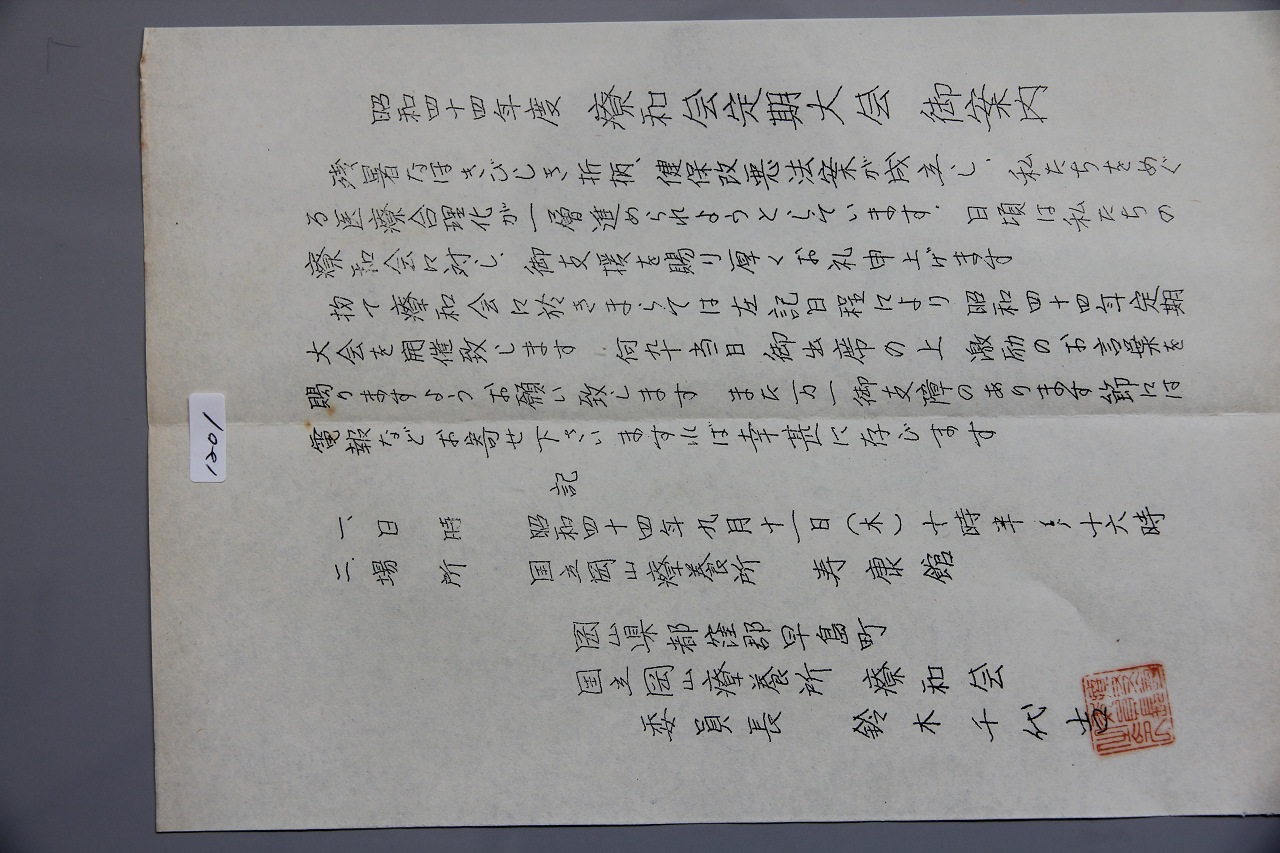 昭和四十四年度 療和会定期大会 御案内
残暑なほきびしき折柄、健保改悪法案が成立し、私たちをめぐ
る医療合理化が一層進められようとしています。日頃は私たちの
療和会に対し、御支援を賜り厚くお礼申上げます
扨て療和会に於きましては左記日程により 昭和四十四年定期
大会を開催致します 何卒当日 御出席の上 激励のお言葉を
賜りますようお願い致します また万一御支障のあります節には
電報などお寄せ下さいますれば幸甚に存じます
記
一、日 時 昭和四十四年九月十一日(木) 十時半より十六時
二、場 所 国立岡山療養所 寿康館
岡山県都窪郡早島町
国立岡山療養所 療和会
委員長 鈴木千代吉
1201